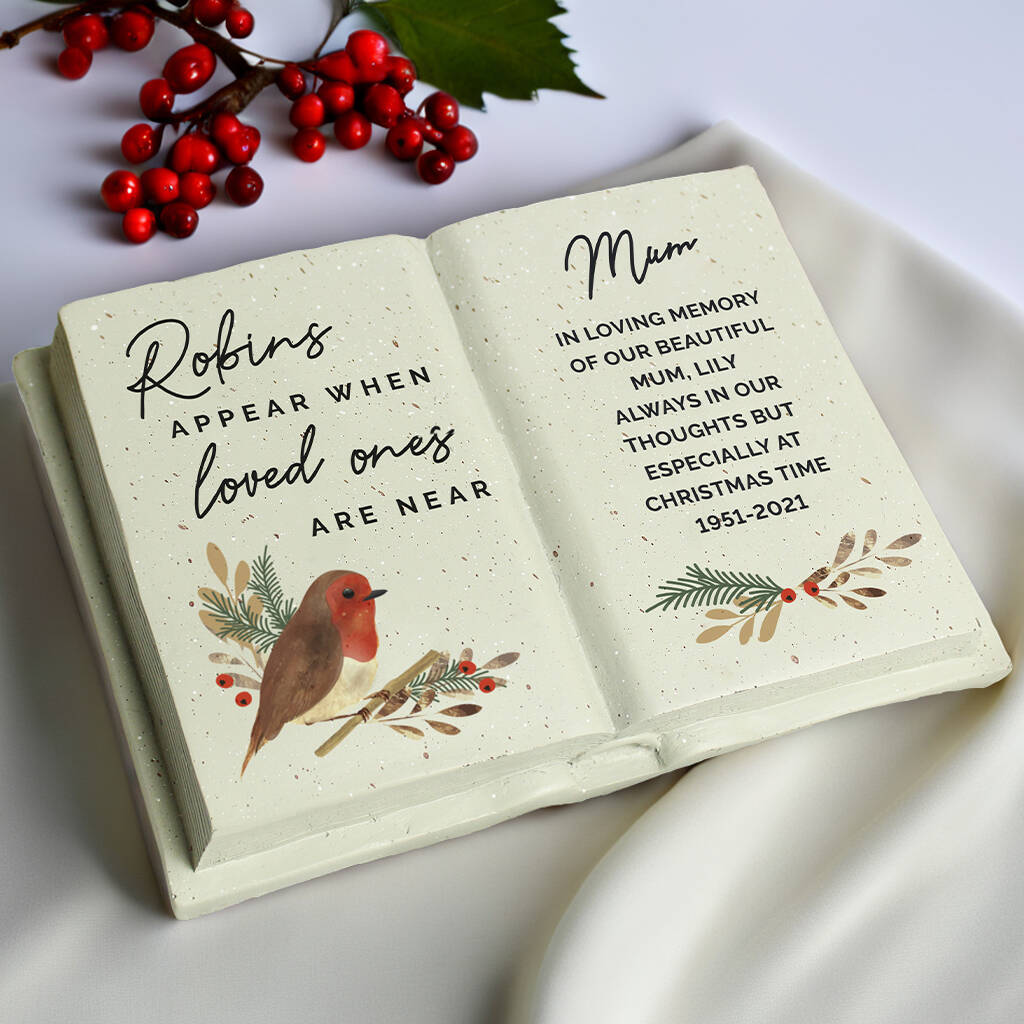 Robins
APPEAR WHEN
loved ones
ARE NEAR
Mum
IN LOVING MEMORY
OF OUR BEAUTIFUL
MUM, LILY
ALWAYS IN OUR
THOUGHTS BUT
ESPECIALLY AT
CHRISTMAS TIME
1951-2021